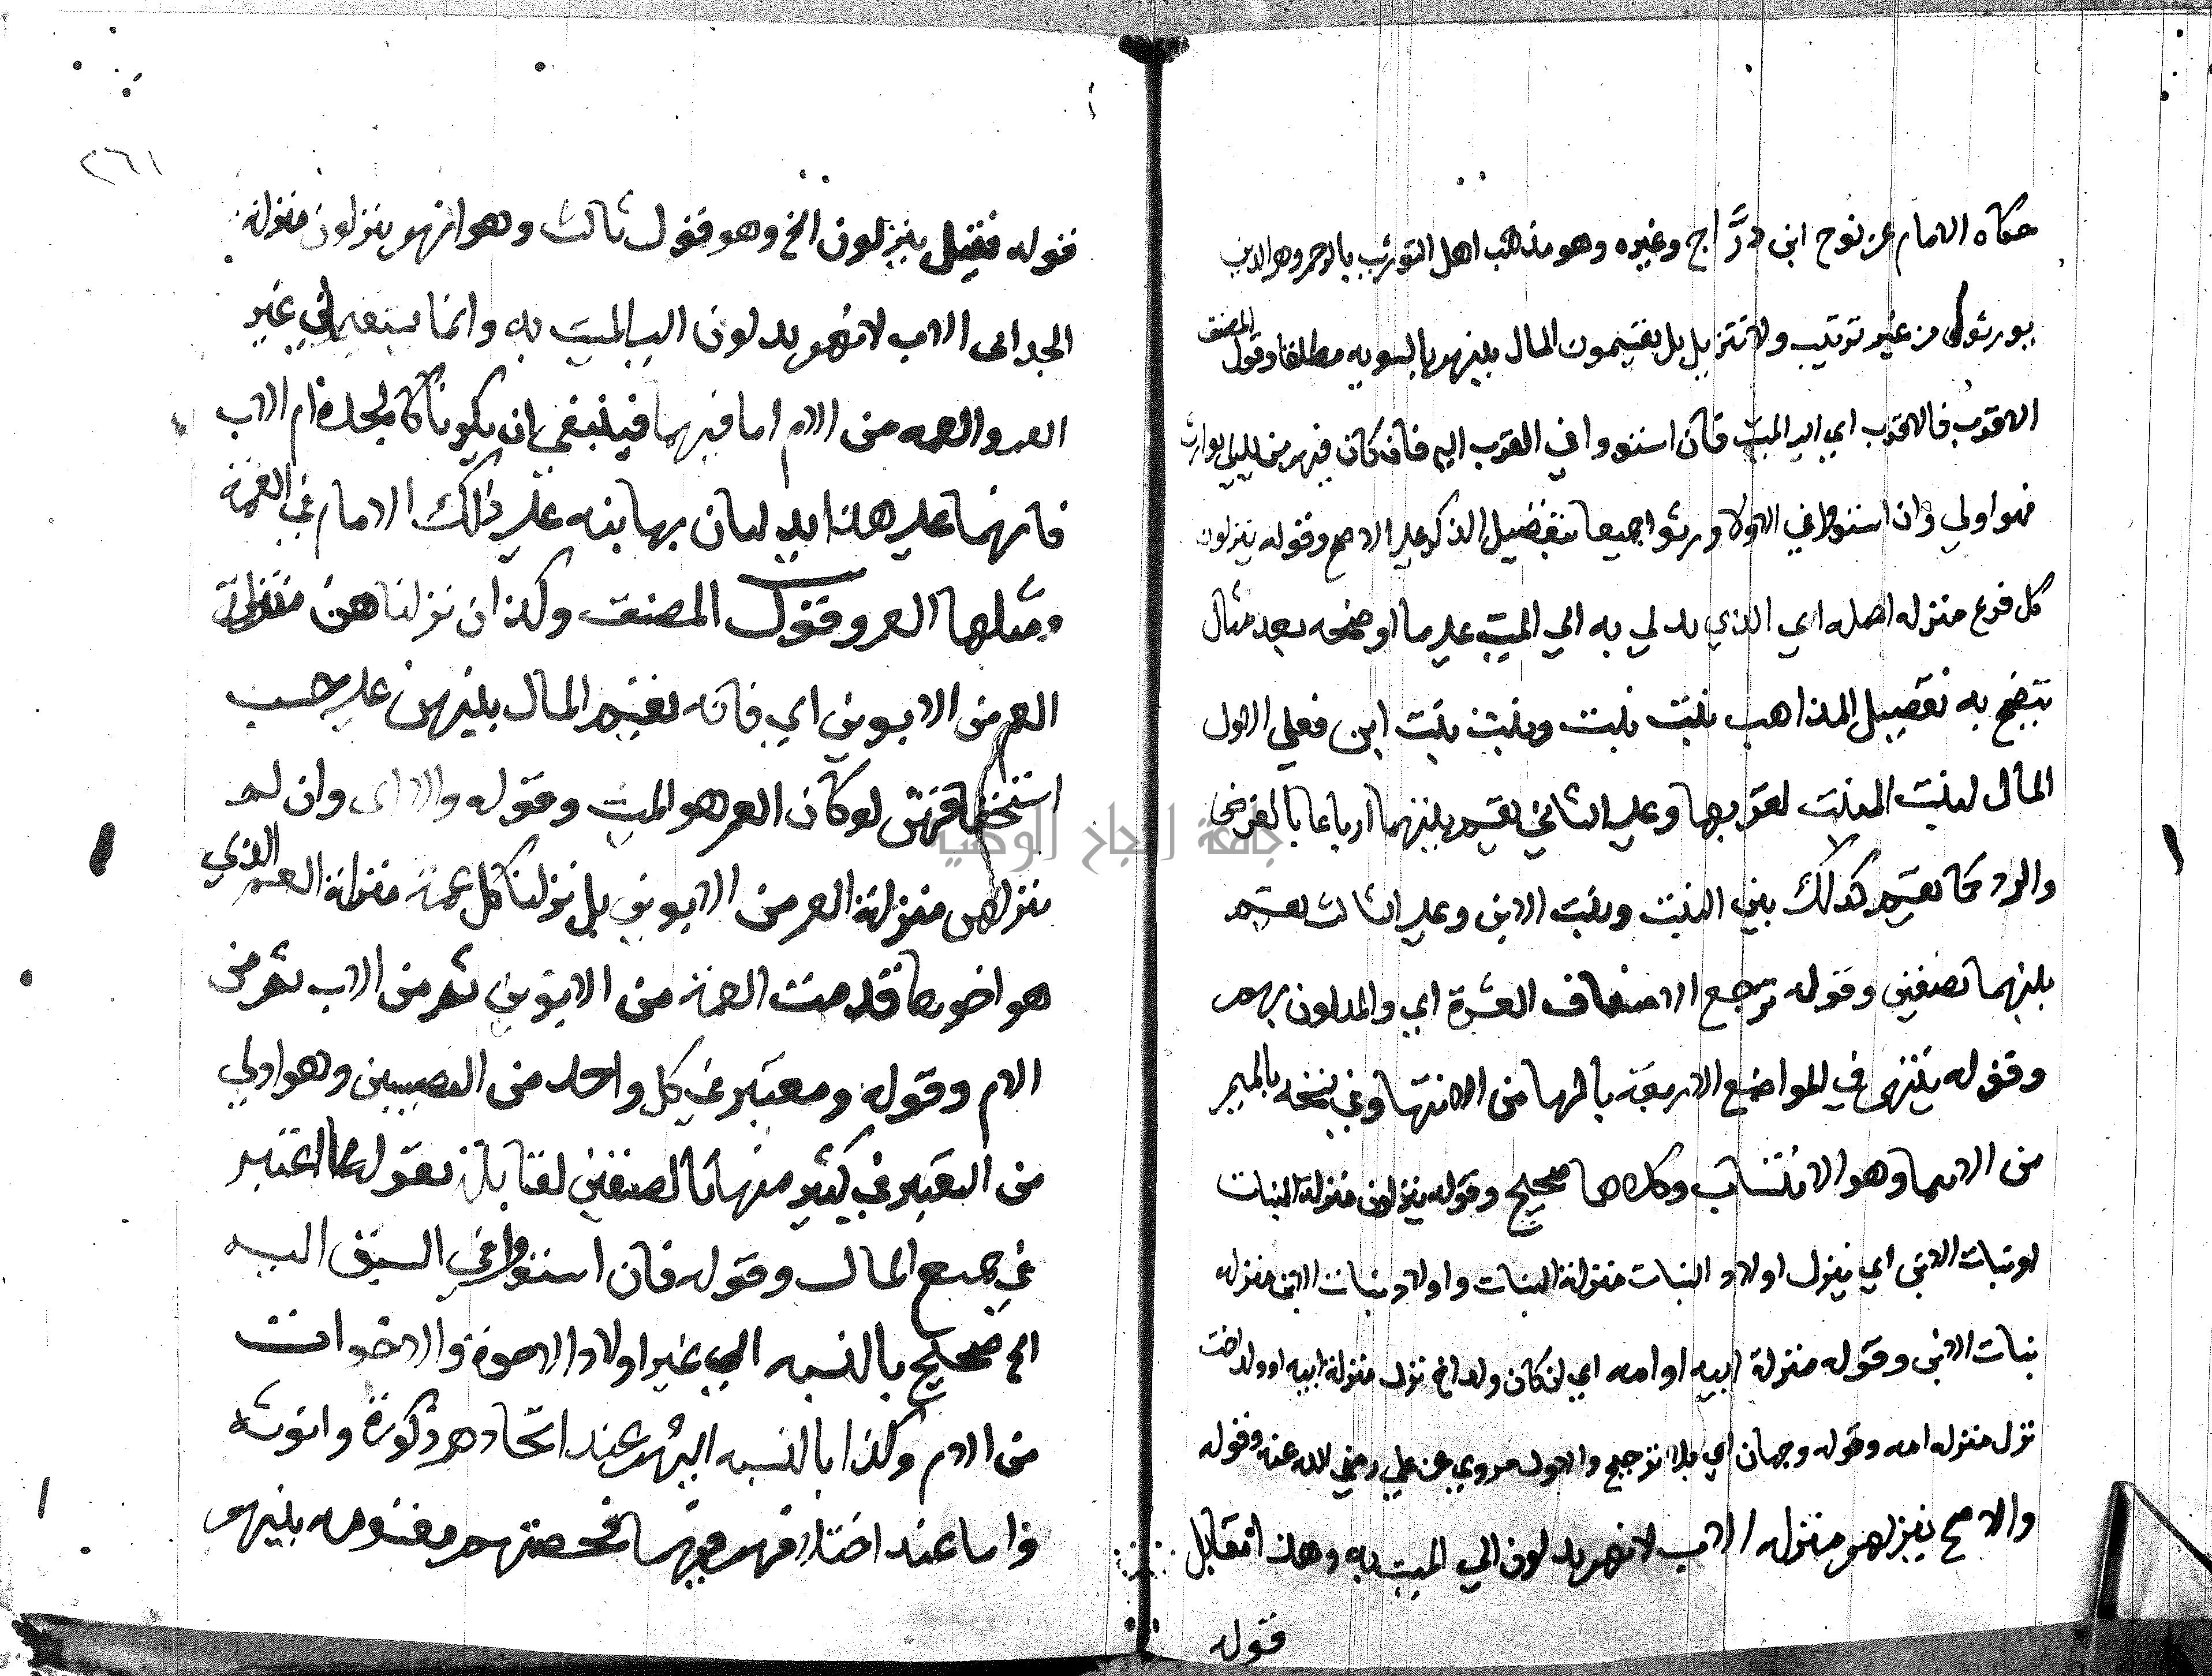 حكاه الامام عن نوح ابن درَّاج وغيره وهو مذهب اهل التوريث بالرحم وهم الذين
يورثوا من غير ترتيب ولا تنزيل بل يقسمون المال بينهم بالسويه مطلقا وقول المصنف
الاقرب فالاقرب اي الي الميت فان استووا في القرب اليه فان كان فيهم من يدلي بوارث
فهو اولي وان استووا في الاولا ورثوا جميعا بتفضيل الذكر علي الاصح وقوله ينزلون
كل فرع منزله اصله اي الذي يدلي به الي الميت علي ما اوضحه بعد مثال
يتضح به تفصيل المذاهب بنت بنت وبنت بنت ابن فعلي الاول
المال لبنت البنت لقربها وعلي الثاني يقسم بينهما ارباعا بالفرض
والرد كما يقسم كذلك بين البنت وبنت الابن وعلي الثالث يقسم
بينهما نصفين وقوله ترجع الاصناف العشرة اي والمدلون بهم
وقوله ينتهي في المواضع الاربعة بالها من الانتها وفي نسخه بالميم
من الانتما وهو الانتساب وكلاهما صحيح وقوله ينزلون منزلة البنات
او بنات الابن اي ينزل اولاد البنات منزلة البنات واولاد بنات الابن منزله
بنات الابن وقوله منزلة ابيه او امه اي ان كان ولد اخ نزل منزلة ابيه او ولد اخت
نزل منزله امه وقوله وجهان اي بلا ترجيح والاول مروي عن علي رضي الله عنه وقوله
والاصح ينزلهم منزله الاب لانهم يدلون الي الميت به وهذا مقابل
قوله
٢٦١
قوله فقيل ينزلون الخ وهو قول ثالث وهو انهم ينزلون منزلة
الجد ابى الاب لانهم يدلون الي الميت به وانما يستقيم في غير
العم والعمه من الام اما فيهما فينبغي ان يكونا كالجدة ام الاب
فانهما علي هذا يدليان بها نبه علي ذلك الامام في العمة
ومثلها العم وقول المصنف وكذا ان نزلناهن منزلة
العم من الابوين اي فانه يقسم المال بينهن علي حسب
استحقاقهن لو كان العم هو الميت وقوله والا اى وان لم
ننزلهن منزلة العم من الابوين بل نزلنا كل عمة منزلة العم الذي
هو اخوها قدمت العمة من الابوين ثم من الاب ثم من
الام وقوله ومعتبر في كل واحد من النصيبين وهو اولي
من التعبير في كثير منها بالصنفين لمقابلته بقوله كما اعتبر
في جميع المال وقوله فان استووا في السبق اليه
الخ صحيح بالنسبه الي غير اولاد الاخوة والاخوات
من الام وكذا بالنسبه اليهم عند اتحادهم ذكورة وانوثه
واما عند اختلافهم فيهما فحصتهم مقسومه بينهم